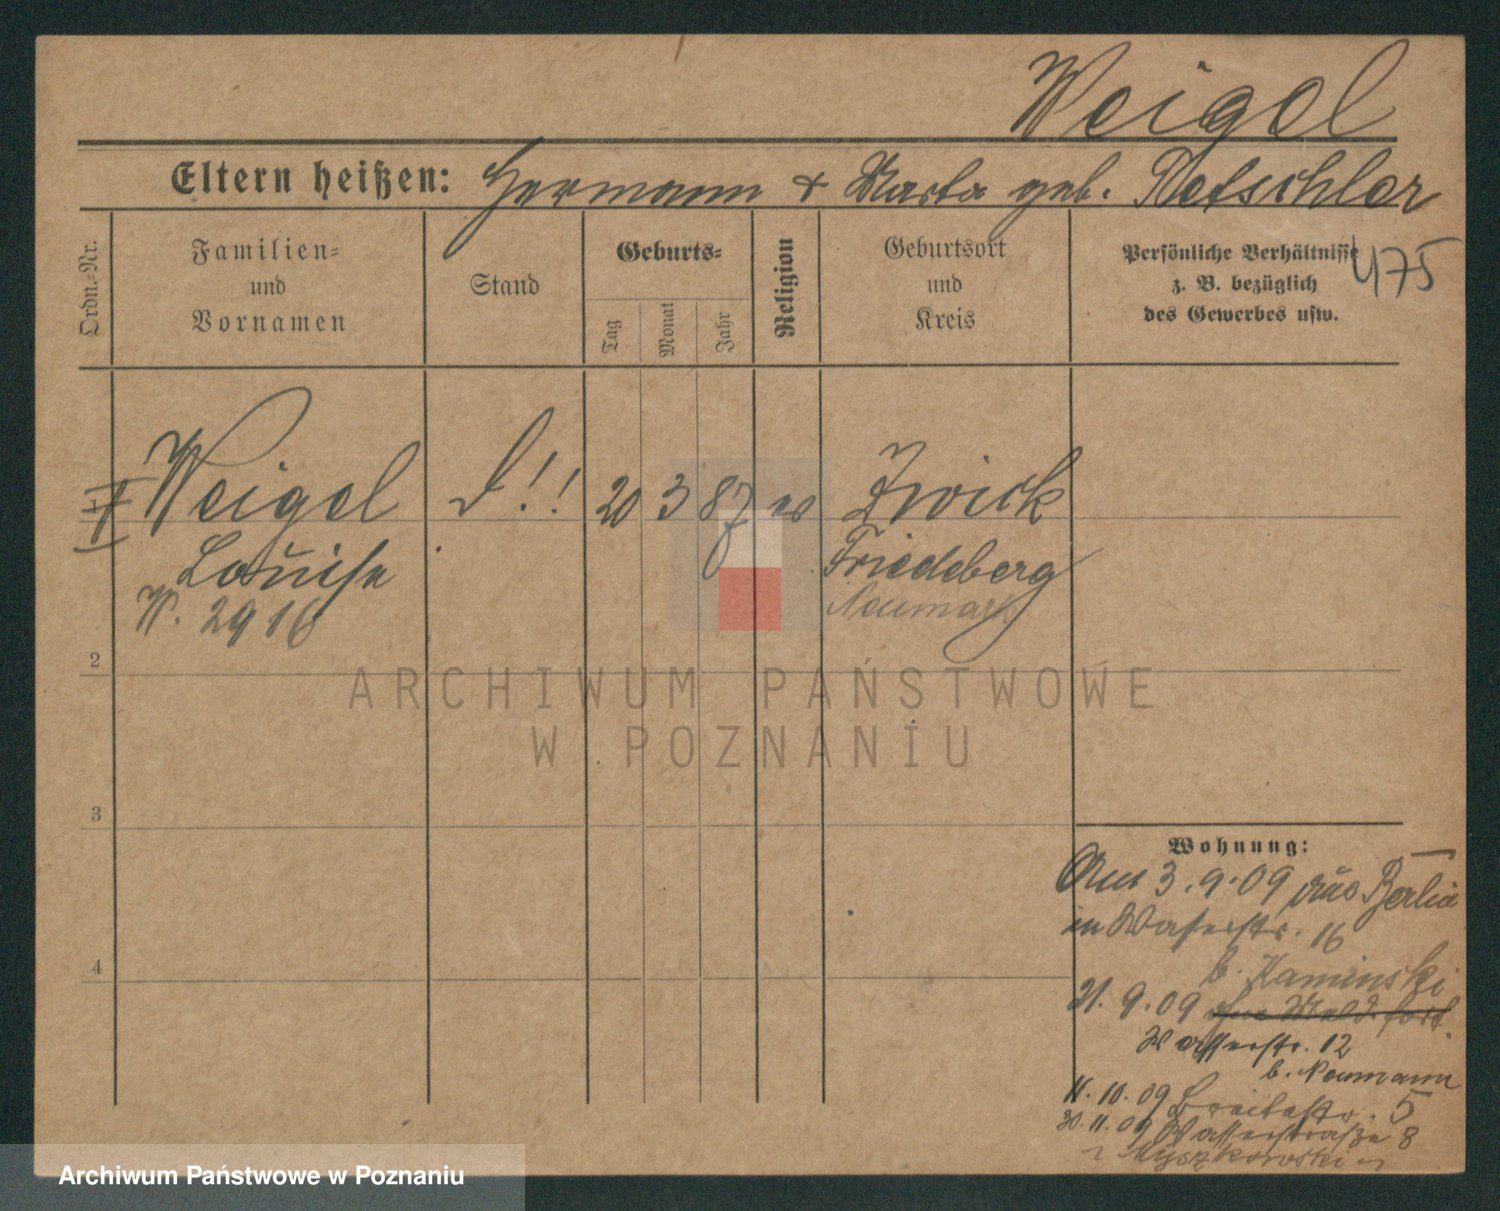 Weigel
Eltern heißen: Hermann + Marta geb. Retschler
475
Ordn.-Nr.
Familien-
und
Vornamen
Stand
Geburts-
Tag
Monat
Jahr
Religion
Geburtsort
und
Kreis
Persönliche Verhältnisse
z. B. bezüglich
des Gewerbes usw.
1 Weigel
20 3 87 Zwick
Louise
Friedeberg
Neumark
W. 2916
2
3
4
Wohnung:
Am 3.9.09 aus Berlin
in Wasserstr. 16
b. Kaminski
21.9.09
Wasserstr. 12
b. Neumann
11.10.09 Breitestr. 5
30.11.09 Wasserstraße 8
Myszkowski
ARCHIWUM PAŃSTWOWE
W POZNANIU
Archiwum Państwowe w Poznaniu